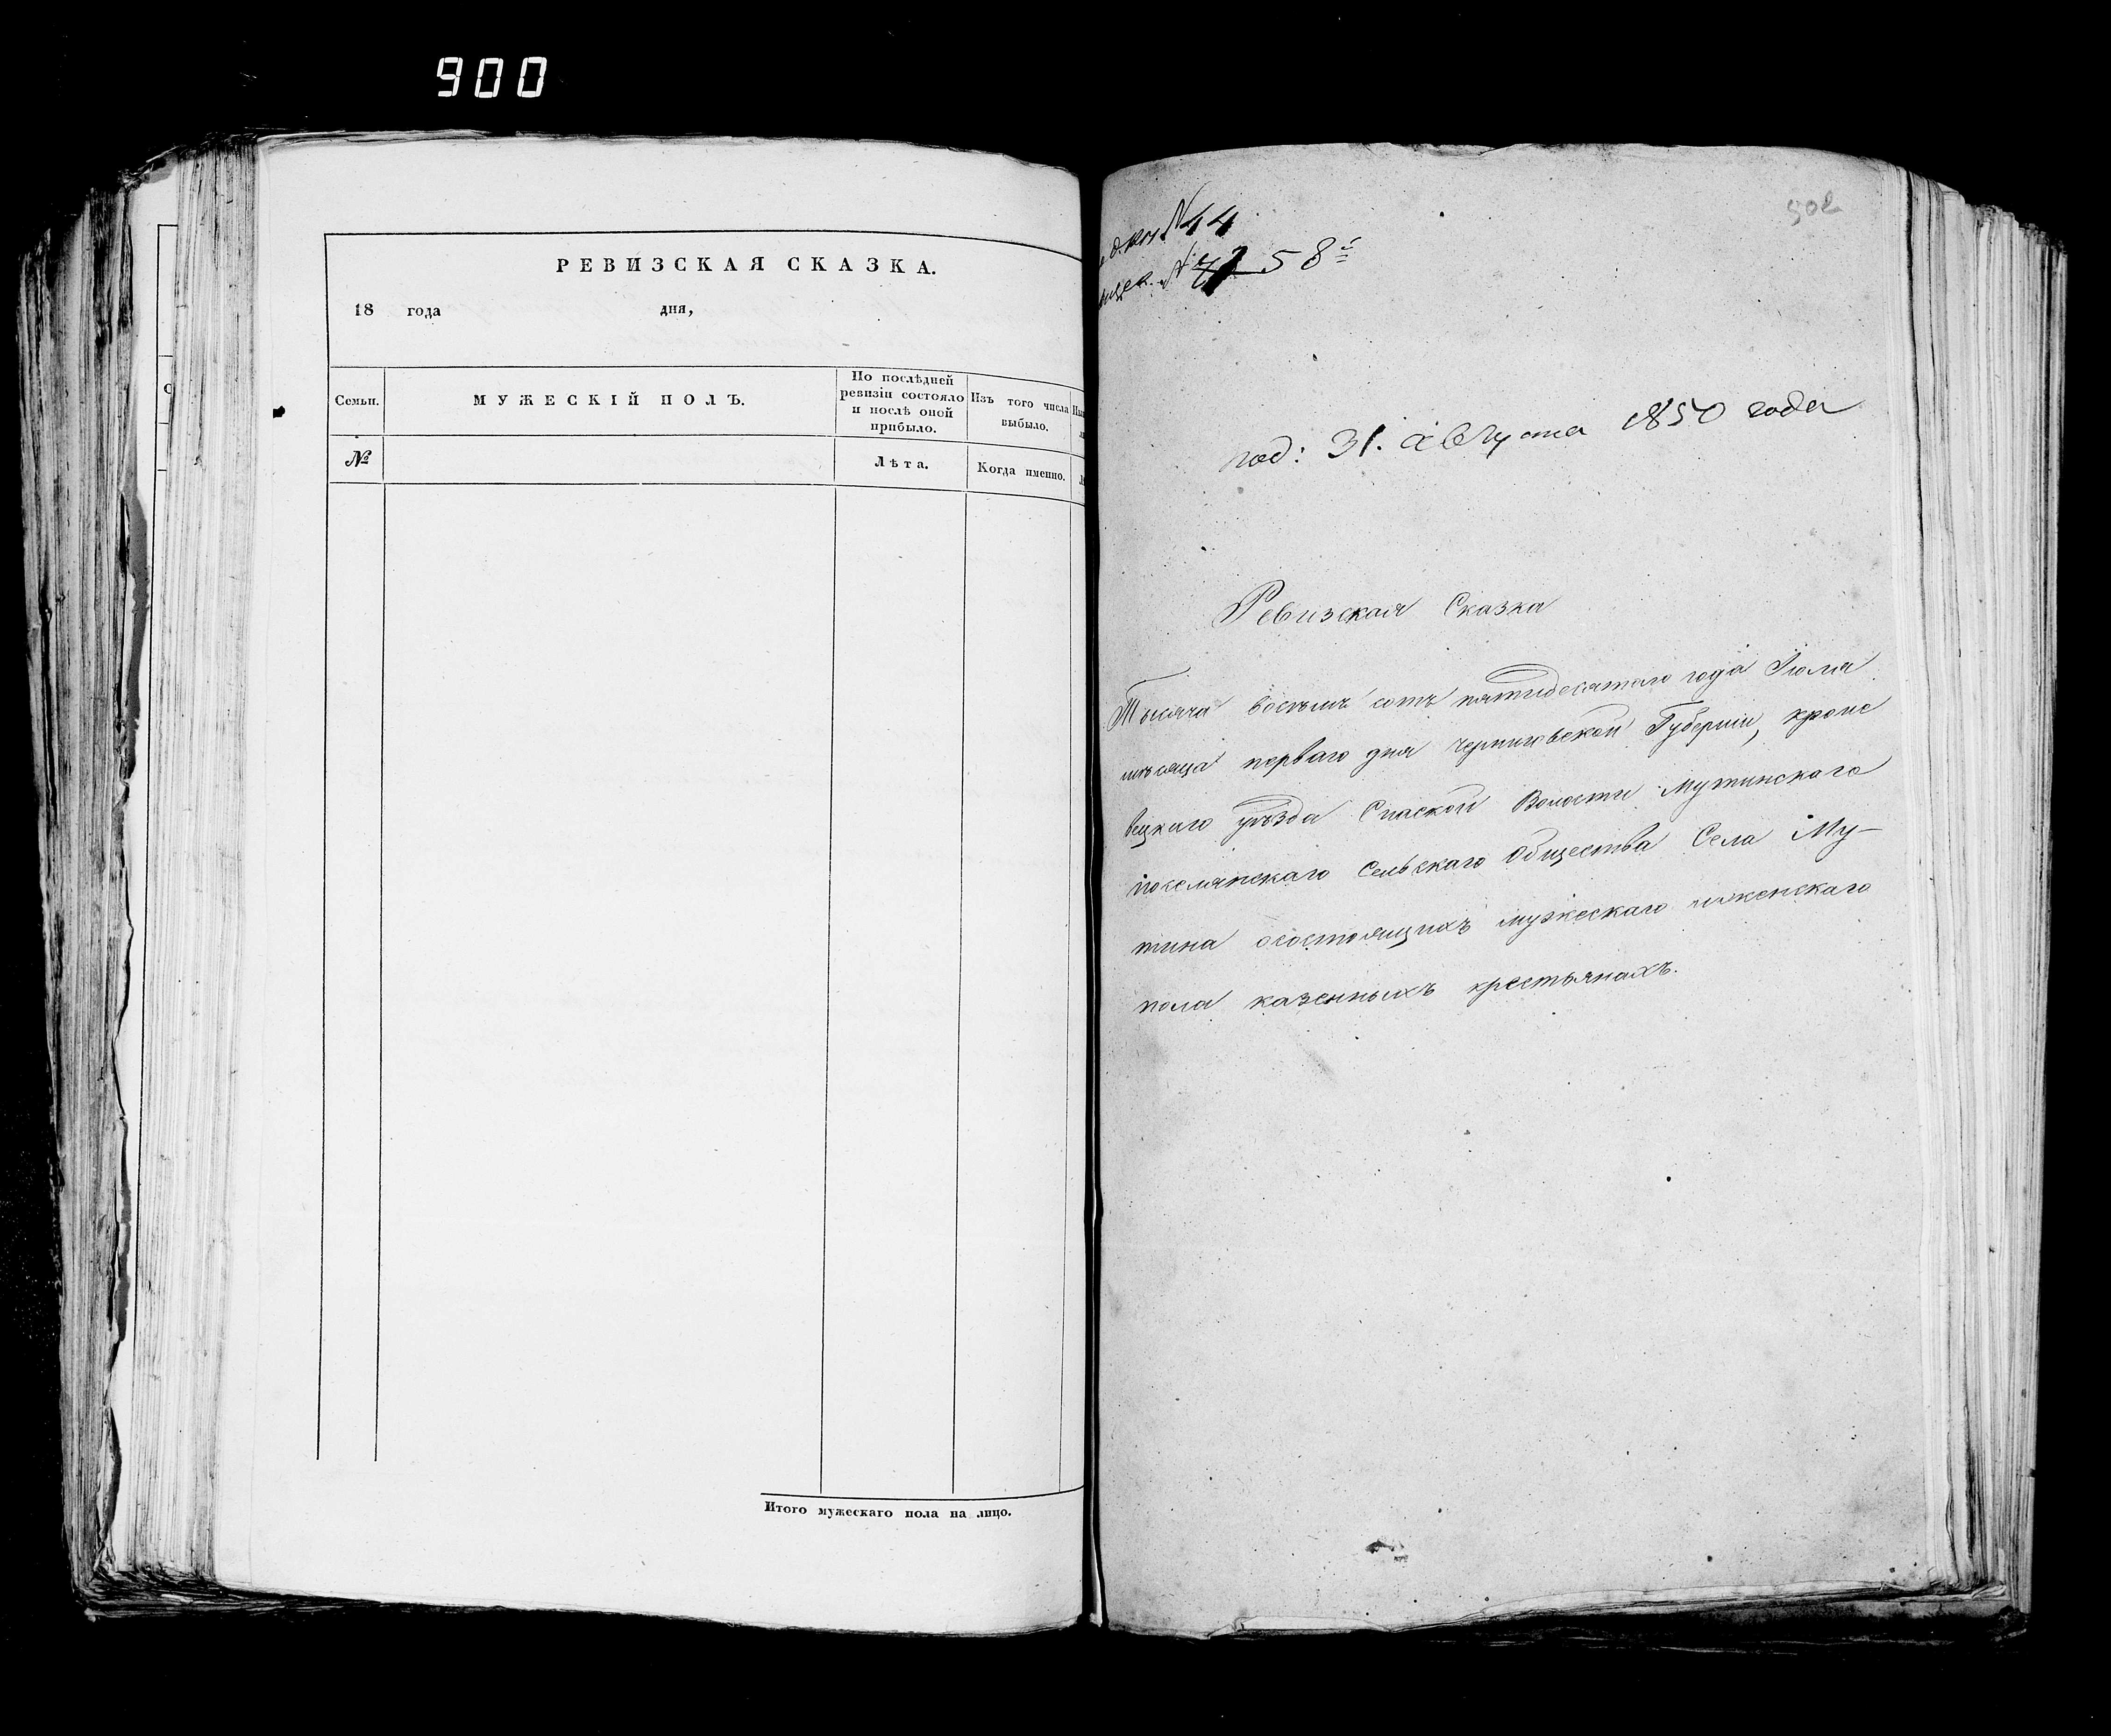 900
РЕВИЗСКАЯ СКАЗКА.
18 года дня,
Семьи.
МУЖЕСКІЙ ПОЛЪ.
По послѣдней
ревизіи состояло
и послѣ оной
прибыло.
Изъ того числа
выбыло.
№
Лѣта.
Когда именно.
Итого мужескаго пола на лицо.
502
№ 44
№ 58
под: 31. августа 1850 года
Ревизская Сказка
Тысяча восемь сотъ пятидесятаго года Іюля
мѣсяца перваго дня Черниговской Губерніи, кроле
вецкаго уѣзда Спаской Волости Мутинскаго
Сельскаго Общества Села Му-
тина осостоящихъ мужескаго иженскаго
пола казенныхъ крестьянахъ.